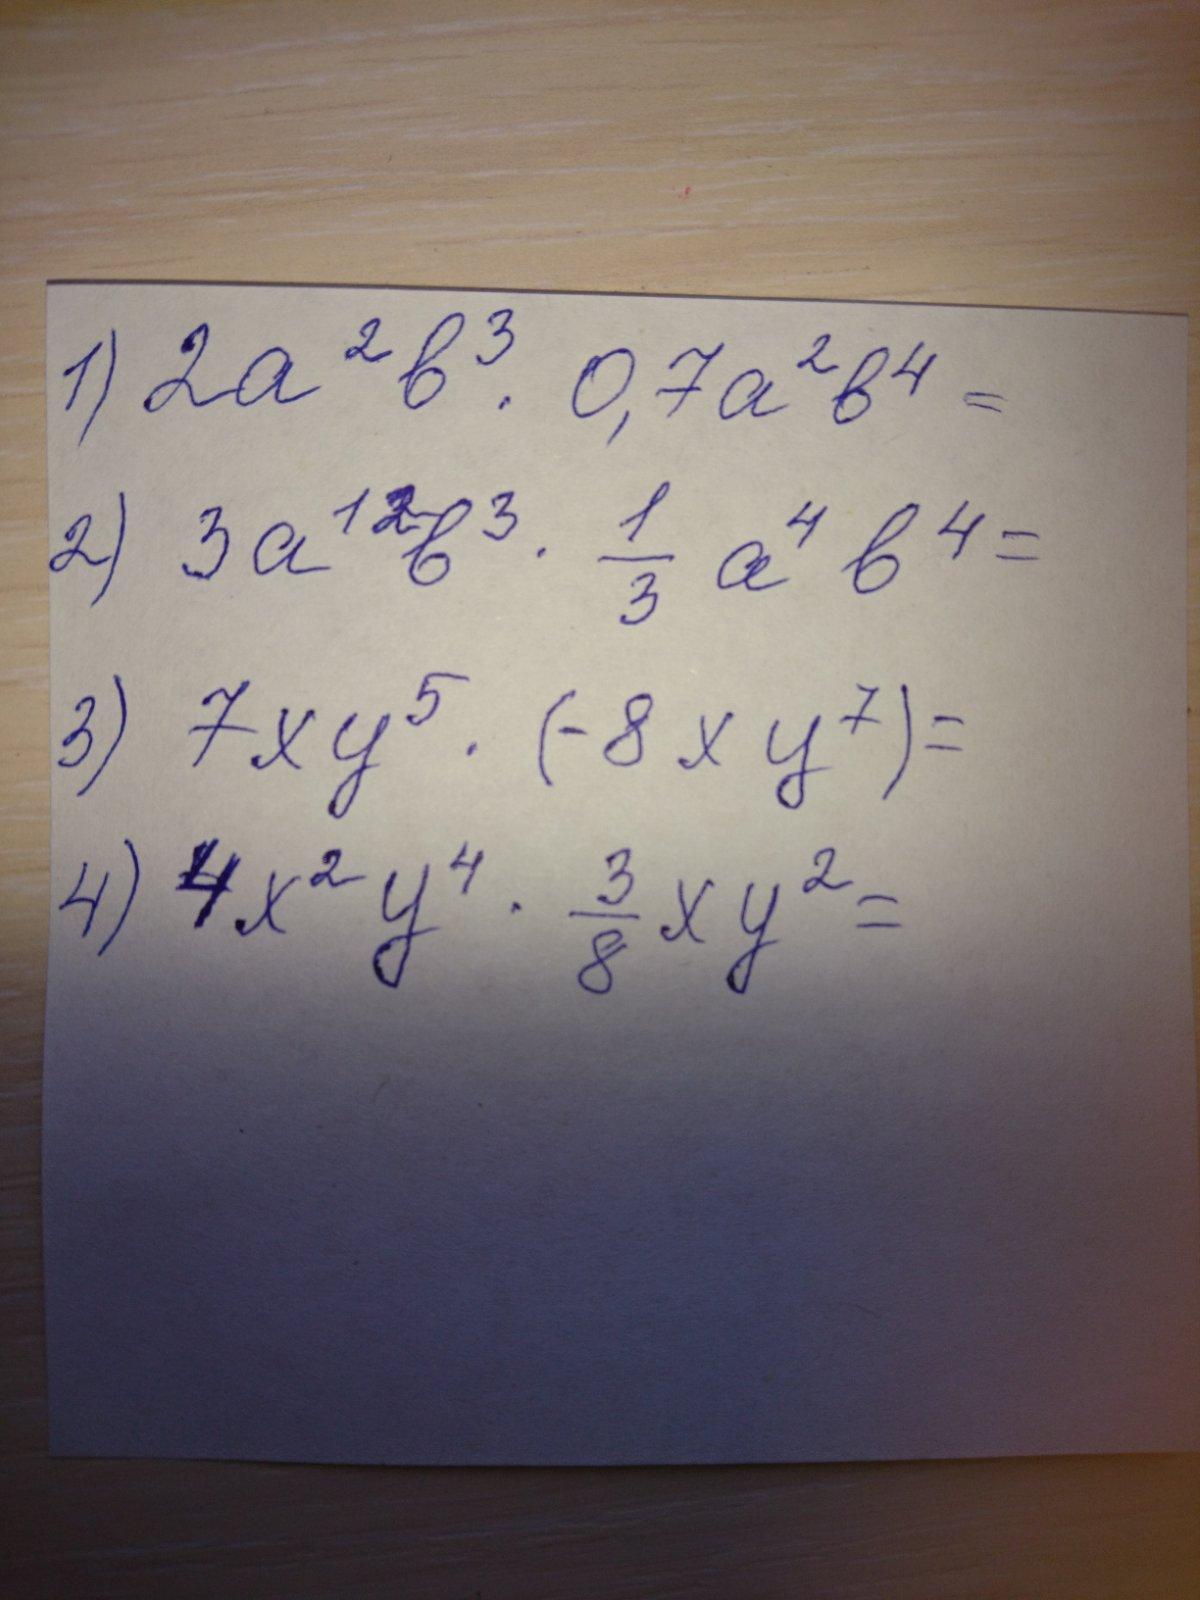 1) 2a²b³ · 0,7a²b⁴ =
2) 3a¹²b³ · 1/3 a⁴ b⁴ =
3) 7xy⁵ · (-8xy⁷) =
4) 4x²y⁴ · 3/8 xy² =